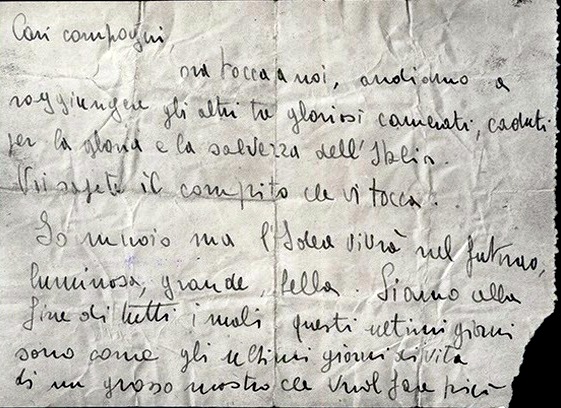 Cari compagni,
ora tocca a noi, andiamo a
raggiungere gli altri tre gloriosi camerati, caduti
per la gloria e la salvezza dell'Italia.
Voi sapete il compito che vi tocca.
Io muoio ma l'Idea vivrà nel futuro,
luminosa, grande, bella. Siamo alla
fine di tutti i mali. Questi ultimi giorni
sono come gli ultimi giorni di vita
di un grosso mostro che vuol fare più